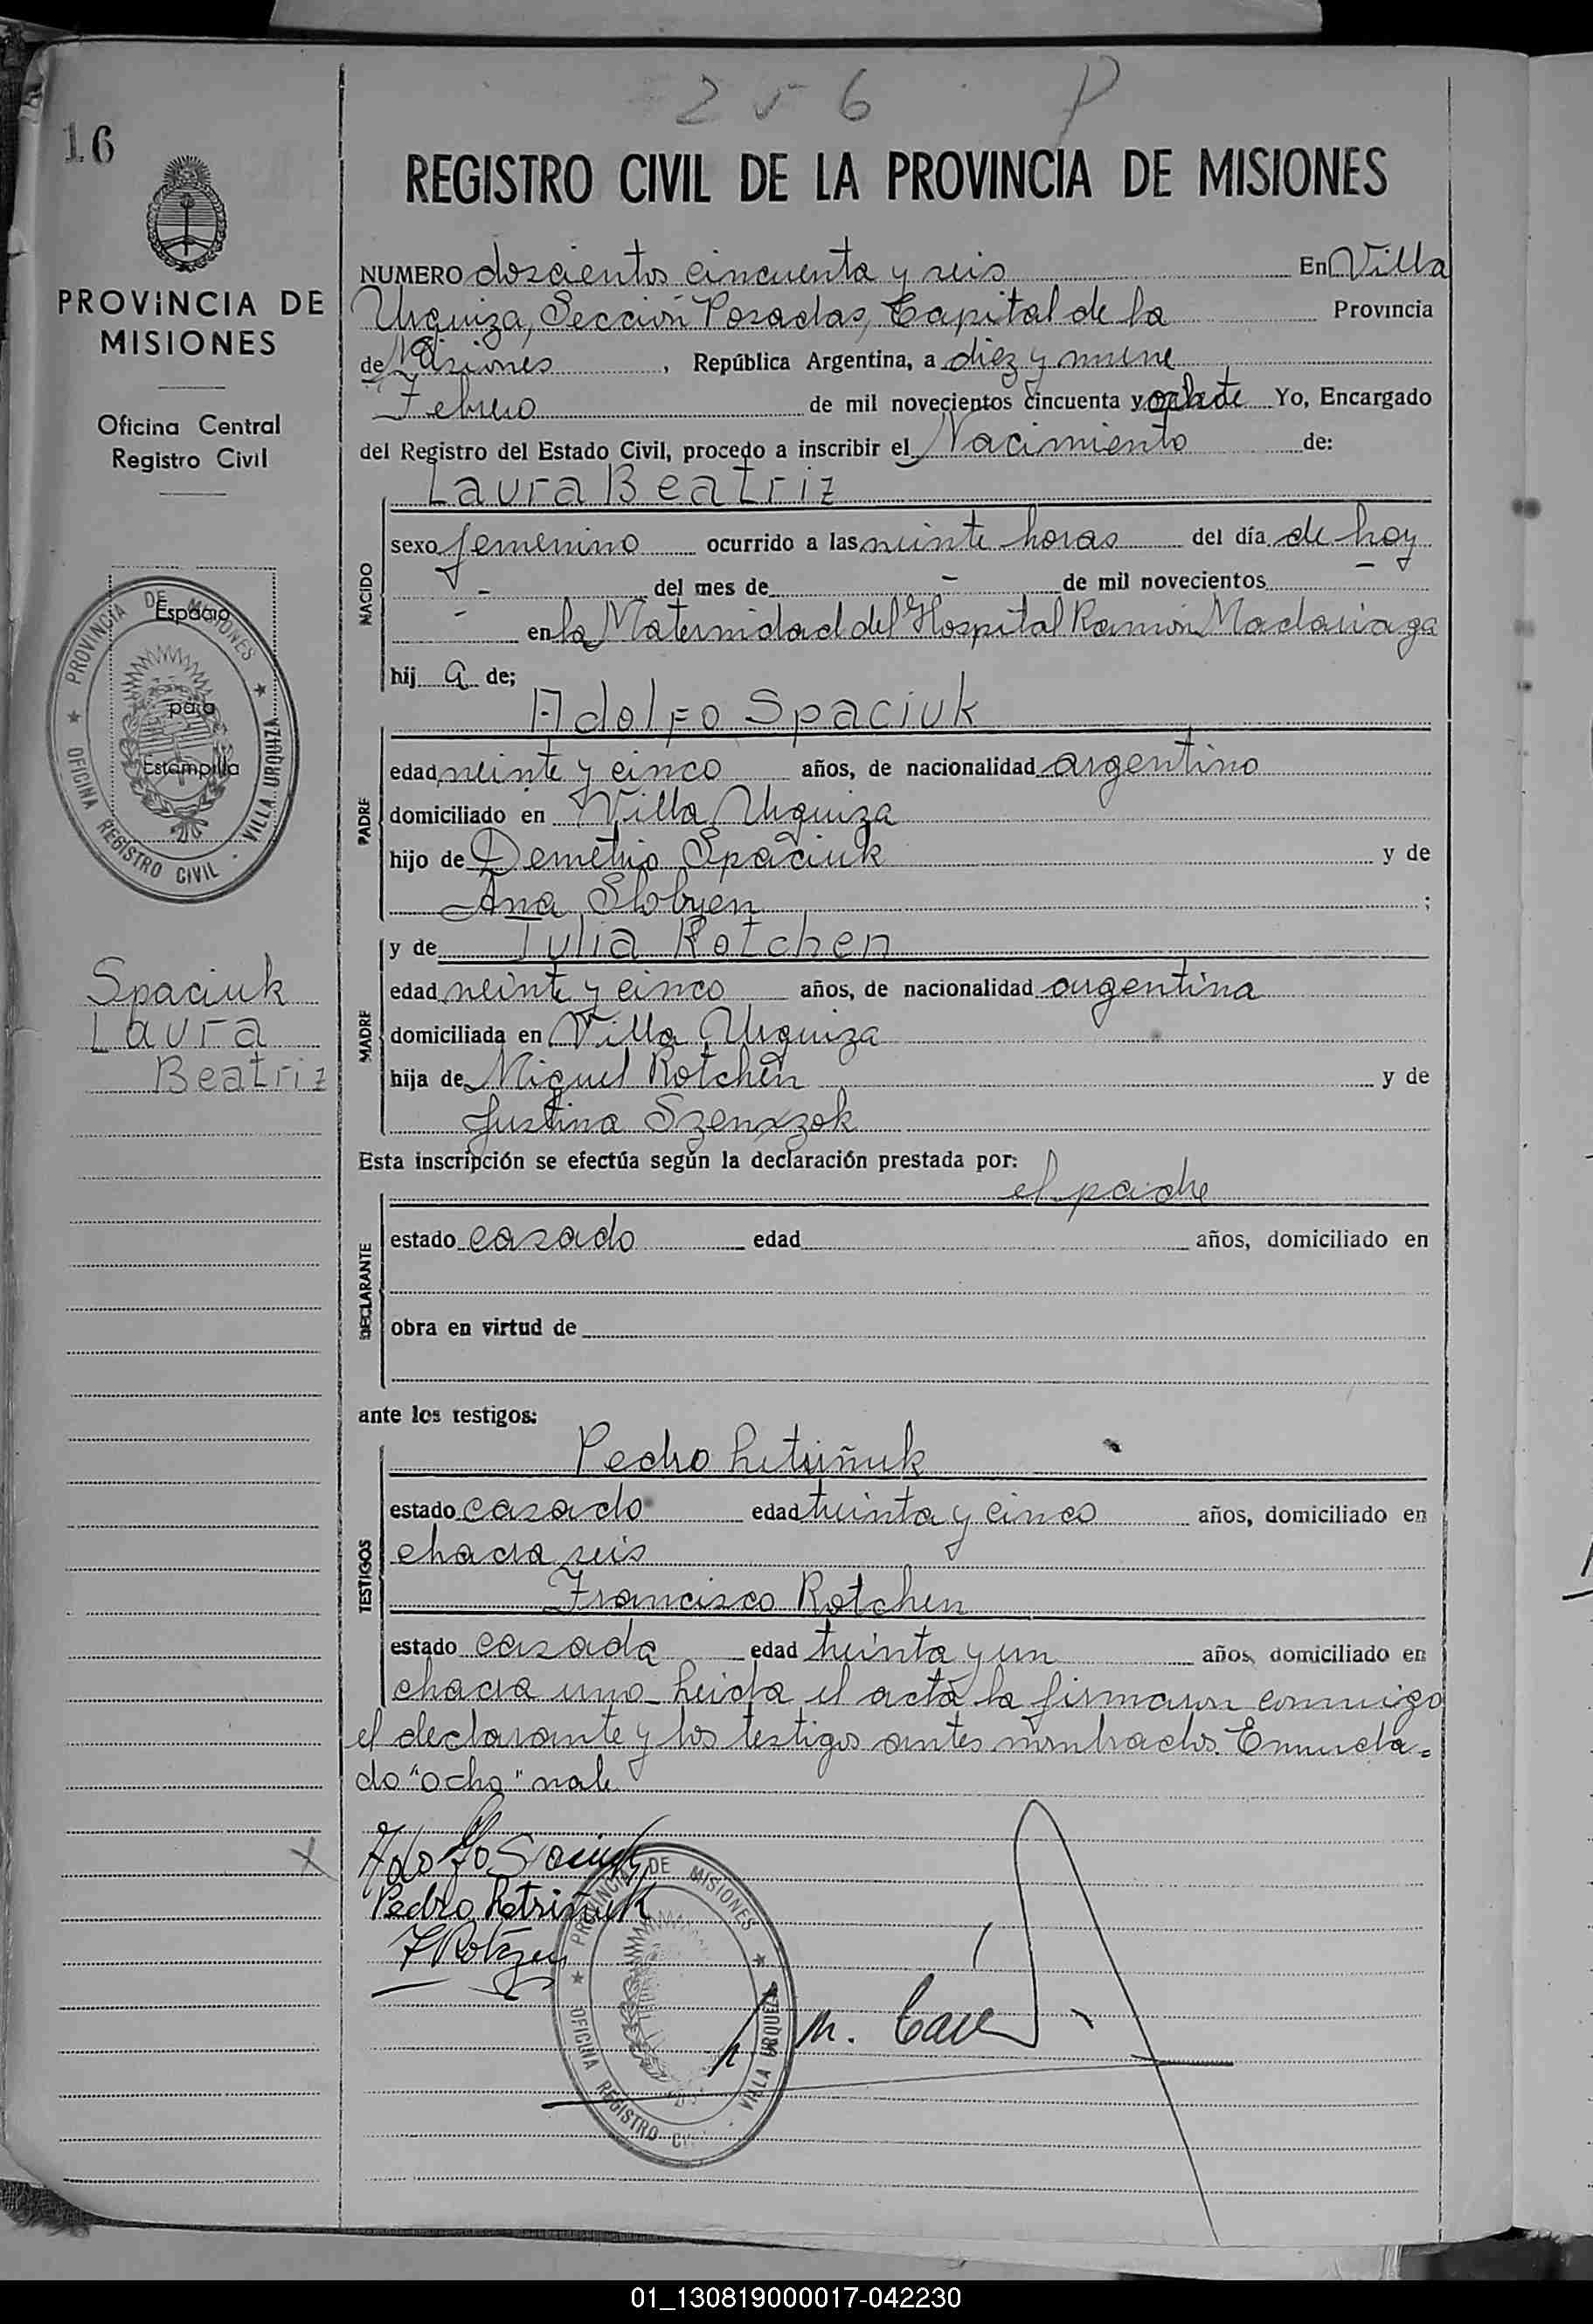 256
16
REGISTRO CIVIL DE LA PROVINCIA DE MISIONES
PROVINCIA DE
MISIONES
Oficina Central
Registro Civil
Espacio
para
Estampilla
PROVINCIA DE MISIONES
OFICINA REGISTRO CIVIL - VILLA URQUIZA
Spaciuk
Laura
Beatriz
NUMERO doscientos cincuenta y seis En Villa
Urquiza, Sección Posadas, Capital de la Provincia
de Misiones, República Argentina, a diez y nueve
Febrero de mil novecientos cincuenta y Yo, Encargado
del Registro del Estado Civil, procedo a inscribir el Nacimiento de:
Laura Beatriz
NACIDO
sexo femenino ocurrido a las veinte horas del día de hoy
- del mes de - de mil novecientos -
- en la Maternidad del Hospital Ramón Madariaga
hij a de;
Adolfo Spaciuk
PADRE
edad veinte y cinco años, de nacionalidad argentino
domiciliado en Villa Urquiza
hijo de Demetrio Spaciuk y de
Ana Slobyen;
y de Julia Rotchen
MADRE
edad veinte y cinco años, de nacionalidad argentina
domiciliada en Villa Urquiza
hija de Miguel Rotchen y de
Justina
Esta inscripción se efectúa según la declaración prestada por:
el padre
DECLARANTE
estado casado edad años, domiciliado en
obra en virtud de
ante los testigos:
Pedro Letriñuk
TESTIGOS
estado casado edad treinta y cinco años, domiciliado en
chacra seis
Francisco Rotchen
estado casada edad treinta y un años, domiciliado en
chacra uno - Leida el acta la firmaron conmigo
el declarante y los testigos antes nombrados. Enmenda=
do "ocho" vale
Adolfo
Pedro Letriñuk
PROVINCIA DE MISIONES
OFICINA REGISTRO CIVIL - VILLA URQUIZA
01_130819000017-042230